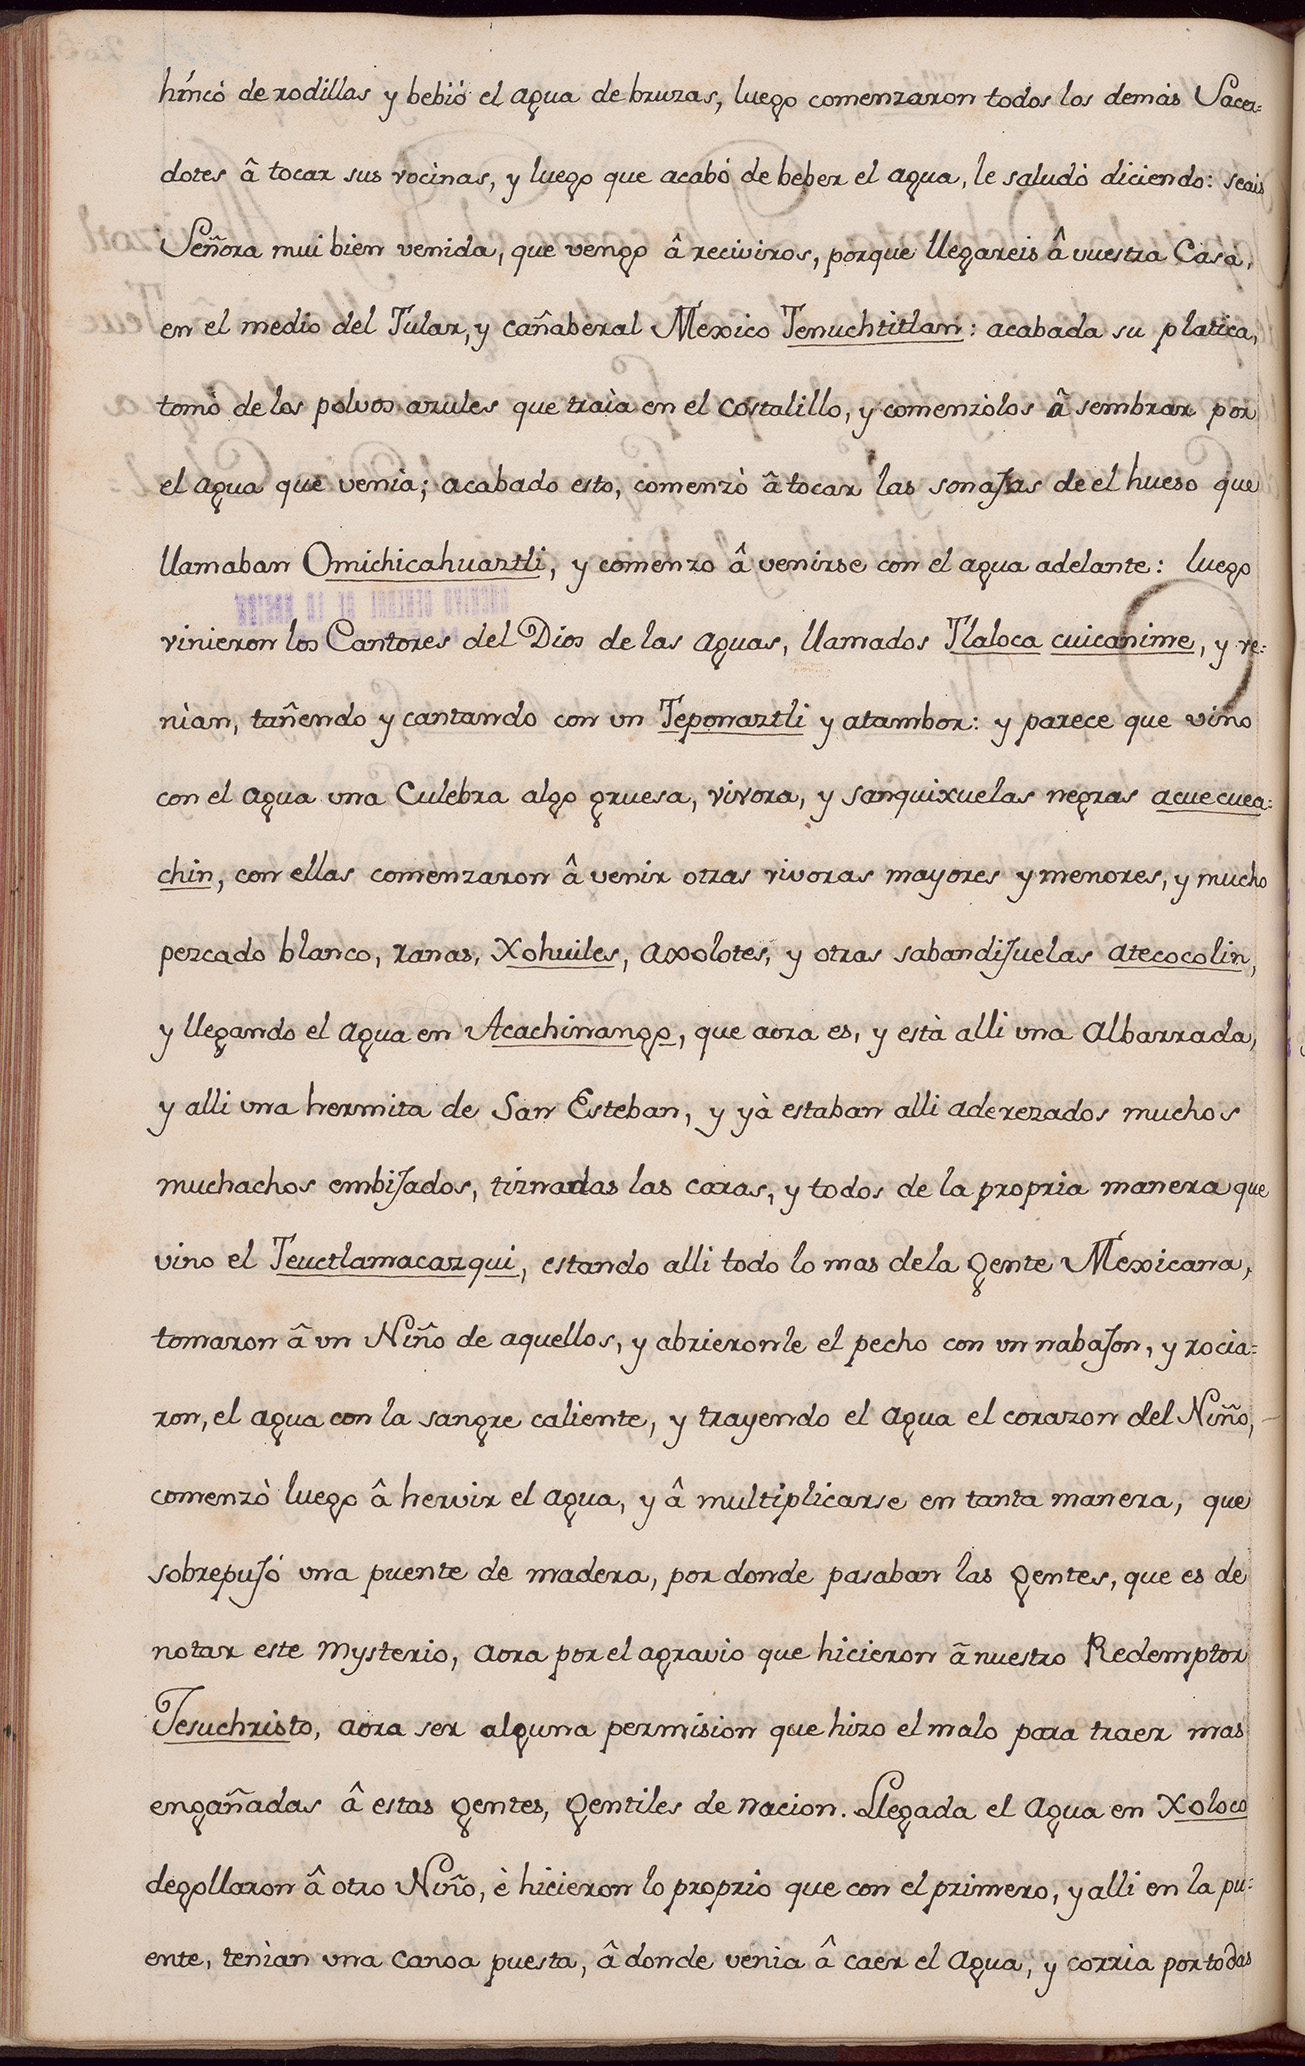 híncó de rodillas y bebió el agua de bruzas, luego comenzaron todos los demás Sacer=
dotes â tocar sus vocinas, y luego que acabó de beber el agua, le saludó diciendo: seais
Señora mui bien venida, que vengo â reciviros, porque llegareis â vuestra Casa,
en el medio del Tular, y cañaberal Mexico Tenuchtitlan: acabada su platica,
tomò de los polvos azules que traìa en el costalillo, y comenzòlos â sembrar por
el agua que venìa; acabado esto, comenzò â tocar las sonajas de el hueso que
llamaban Omichicahuaztli, y comenzo â venirse con el agua adelante: luego
vinieron los Cantores del Dios de las aguas, llamados Tlaloca cuicanime, y ve=
nìan, tañendo y cantando con un Teponaztli y atambor: y parece que vino
con el agua una Culebra algo gruesa, vivora, y sanquixuelas negras acuecuea=
chin, con ellas comenzaron â venir otras vivoras mayores y menores, y mucho
pezcado blanco, ranas, Xohuiles, axolotes, y otras sabandijuelas atecocolin,
y llegando el agua en Acachinango, que aora es, y està alli una albarrada,
y alli una hermita de San Esteban, y yà estaban alli aderezados muchos
muchachos embijados, tiznadas las caras, y todos de la propria manera que
vino el Teuctlamacazqui, estando alli todo lo mas dela gente Mexicana,
tomaron â un Niño de aquellos, y abrieronle el pecho con un nabajon, y rocia=
ron, el agua con la sangre caliente, y trayendo el agua el corazon del Niño,
comenzò luego â hervir el agua, y â multiplicarse en tanta manera, que
sobrepujó una puente de madera, por donde pasaban las gentes, que es de
notar este mysterio, aora por el agravio que hicieron â nuestro Redemptor
Jesuchristo, aora ser alguna permision que hizo el malo para traer mas
engañadas â estas gentes, gentiles de nacion. Llegada el agua en Xoloco
degollaron â otro Niño, è hicieron lo proprio que con el primero, y alli en la pu=
ente, tenìan una canoa puesta, â donde venia â caer el agua, y corrìa por todas